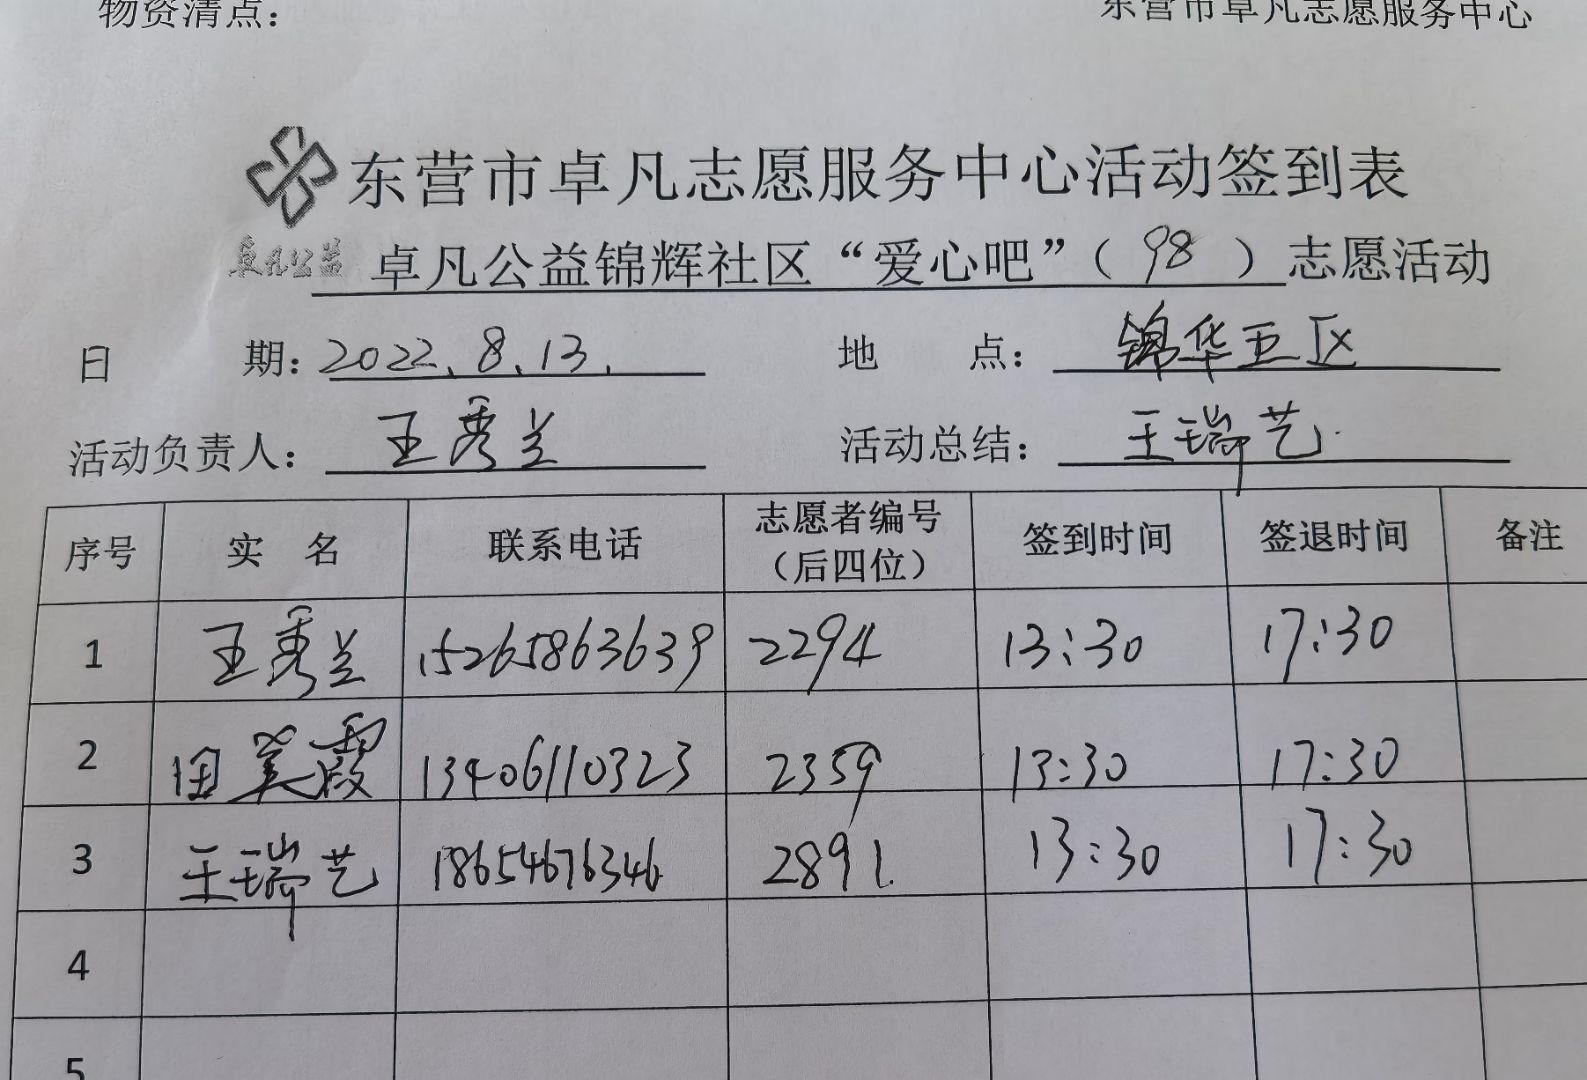 物资清点：
东营市卓凡志愿服务中心
东营市卓凡志愿服务中心活动签到表
卓凡公益
卓凡公益锦辉社区“爱心吧”（98）志愿活动
日 期：2022.8.13. 地 点：锦华五区
活动负责人：王秀兰 活动总结：王瑞艺
序号 实 名 联系电话 志愿者编号（后四位） 签到时间 签退时间 备注
1 王秀兰 15265863639 2294 13:30 17:30
2 田美霞 13406110323 2359 13:30 17:30
3 王瑞艺 18654676346 2891 13:30 17:30
4
5